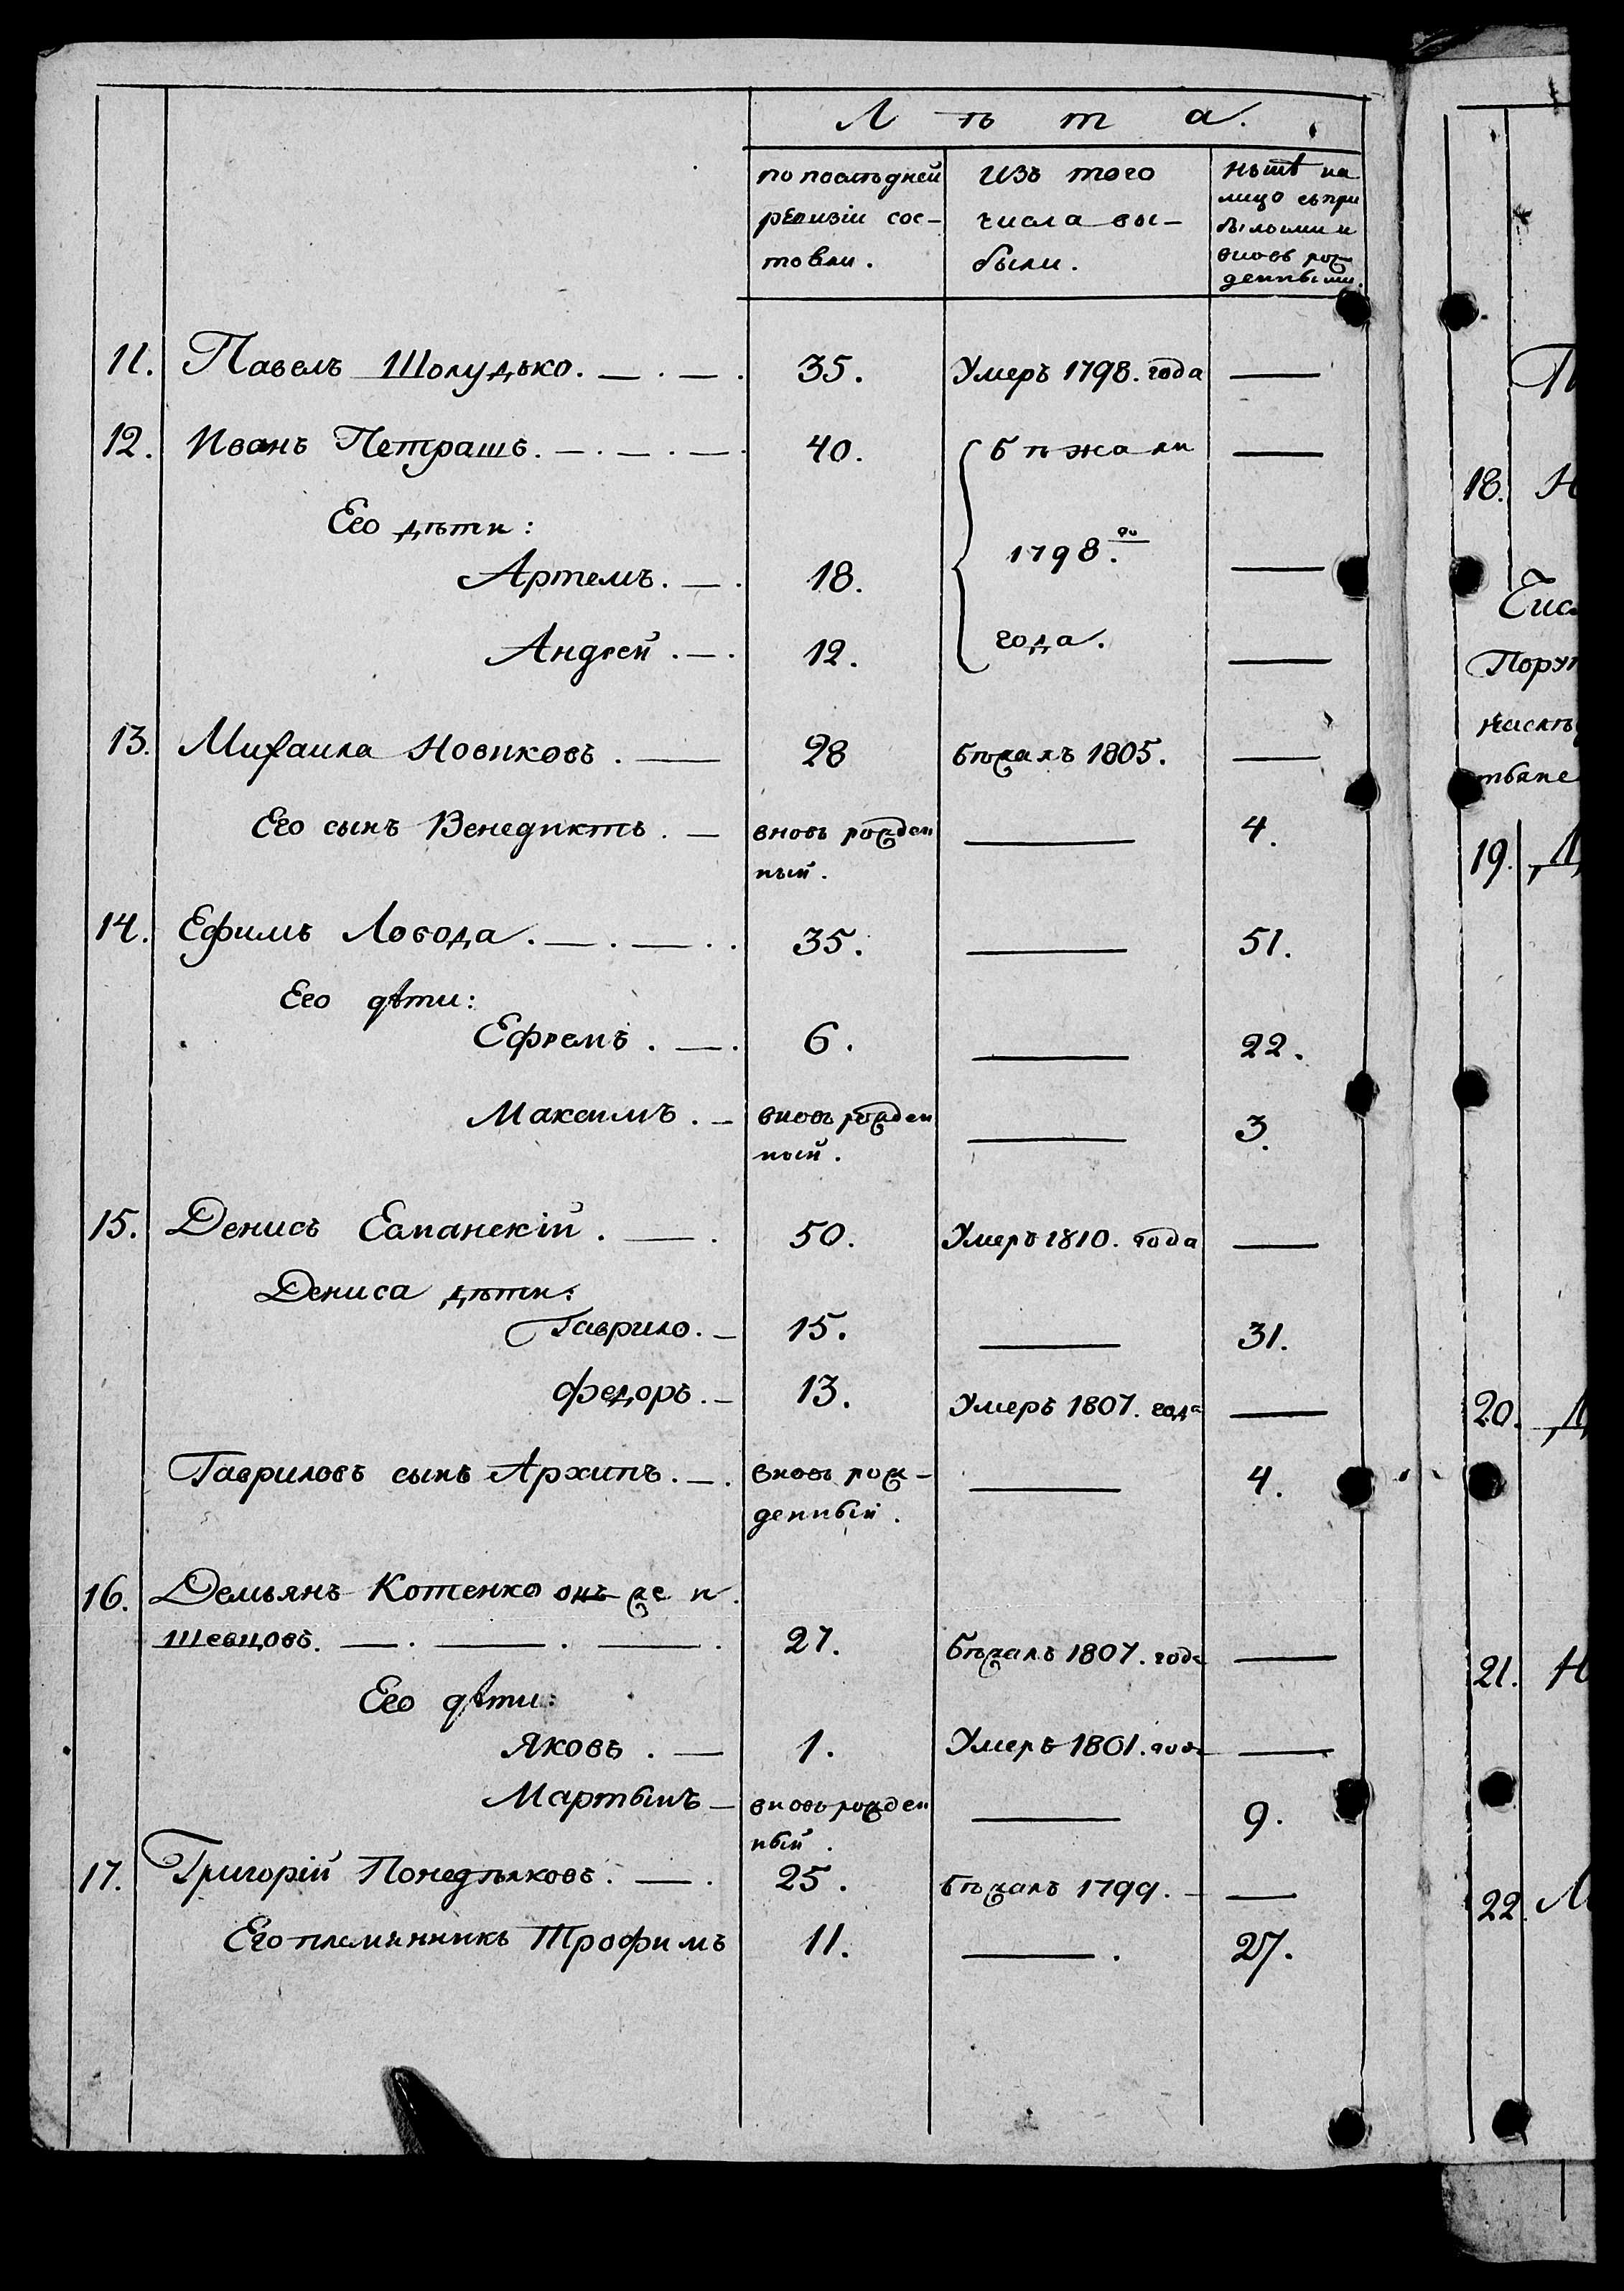 Лѣта.
по послѣдней
ревизіи сос-
тояли.
изъ того
числа вы-
были.
нынѣ на
лицо съ при
былыми и
вновь рож
денными.
11. Павелъ Шолудько. 35. Умеръ 1798. года —
12. Иванъ Петрашъ. 40. Бѣжали —
Его дѣти:
Артемъ. 18. 1798.го —
Андрей. 12. года. —
13. Михаила Новиковъ. 28 бѣжалъ 1805. —
Его сынъ Венедиктъ. вновь рожден — 4.
ный.
14. Ефимъ Лобода. 35. — 51.
Его дѣти:
Ефремъ. 6. — 22.
Максимъ. вновь рожден — 3.
ный.
15. Денисъ 50. Умеръ 1810. года —
Дениса дѣти:
Гаврило. 15. — 31.
Федоръ. 13. Умеръ 1807. года —
Гавриловъ сынъ Архипъ. вновь рож- — 4.
денный.
16. Демьянъ Котенко онъ же и
Шевцовъ. 27. бѣжалъ 1807. года —
Его дѣти:
Яковъ. 1. Умеръ 1801. года —
Мартынъ вновь рожден — 9.
ный.
17. Григорій Понедѣлковъ. 25. бѣжалъ 1799. —
Его племянникъ Трофимъ 11. — 27.
18. Н
19. Д
20. Д
21. Н
22. М